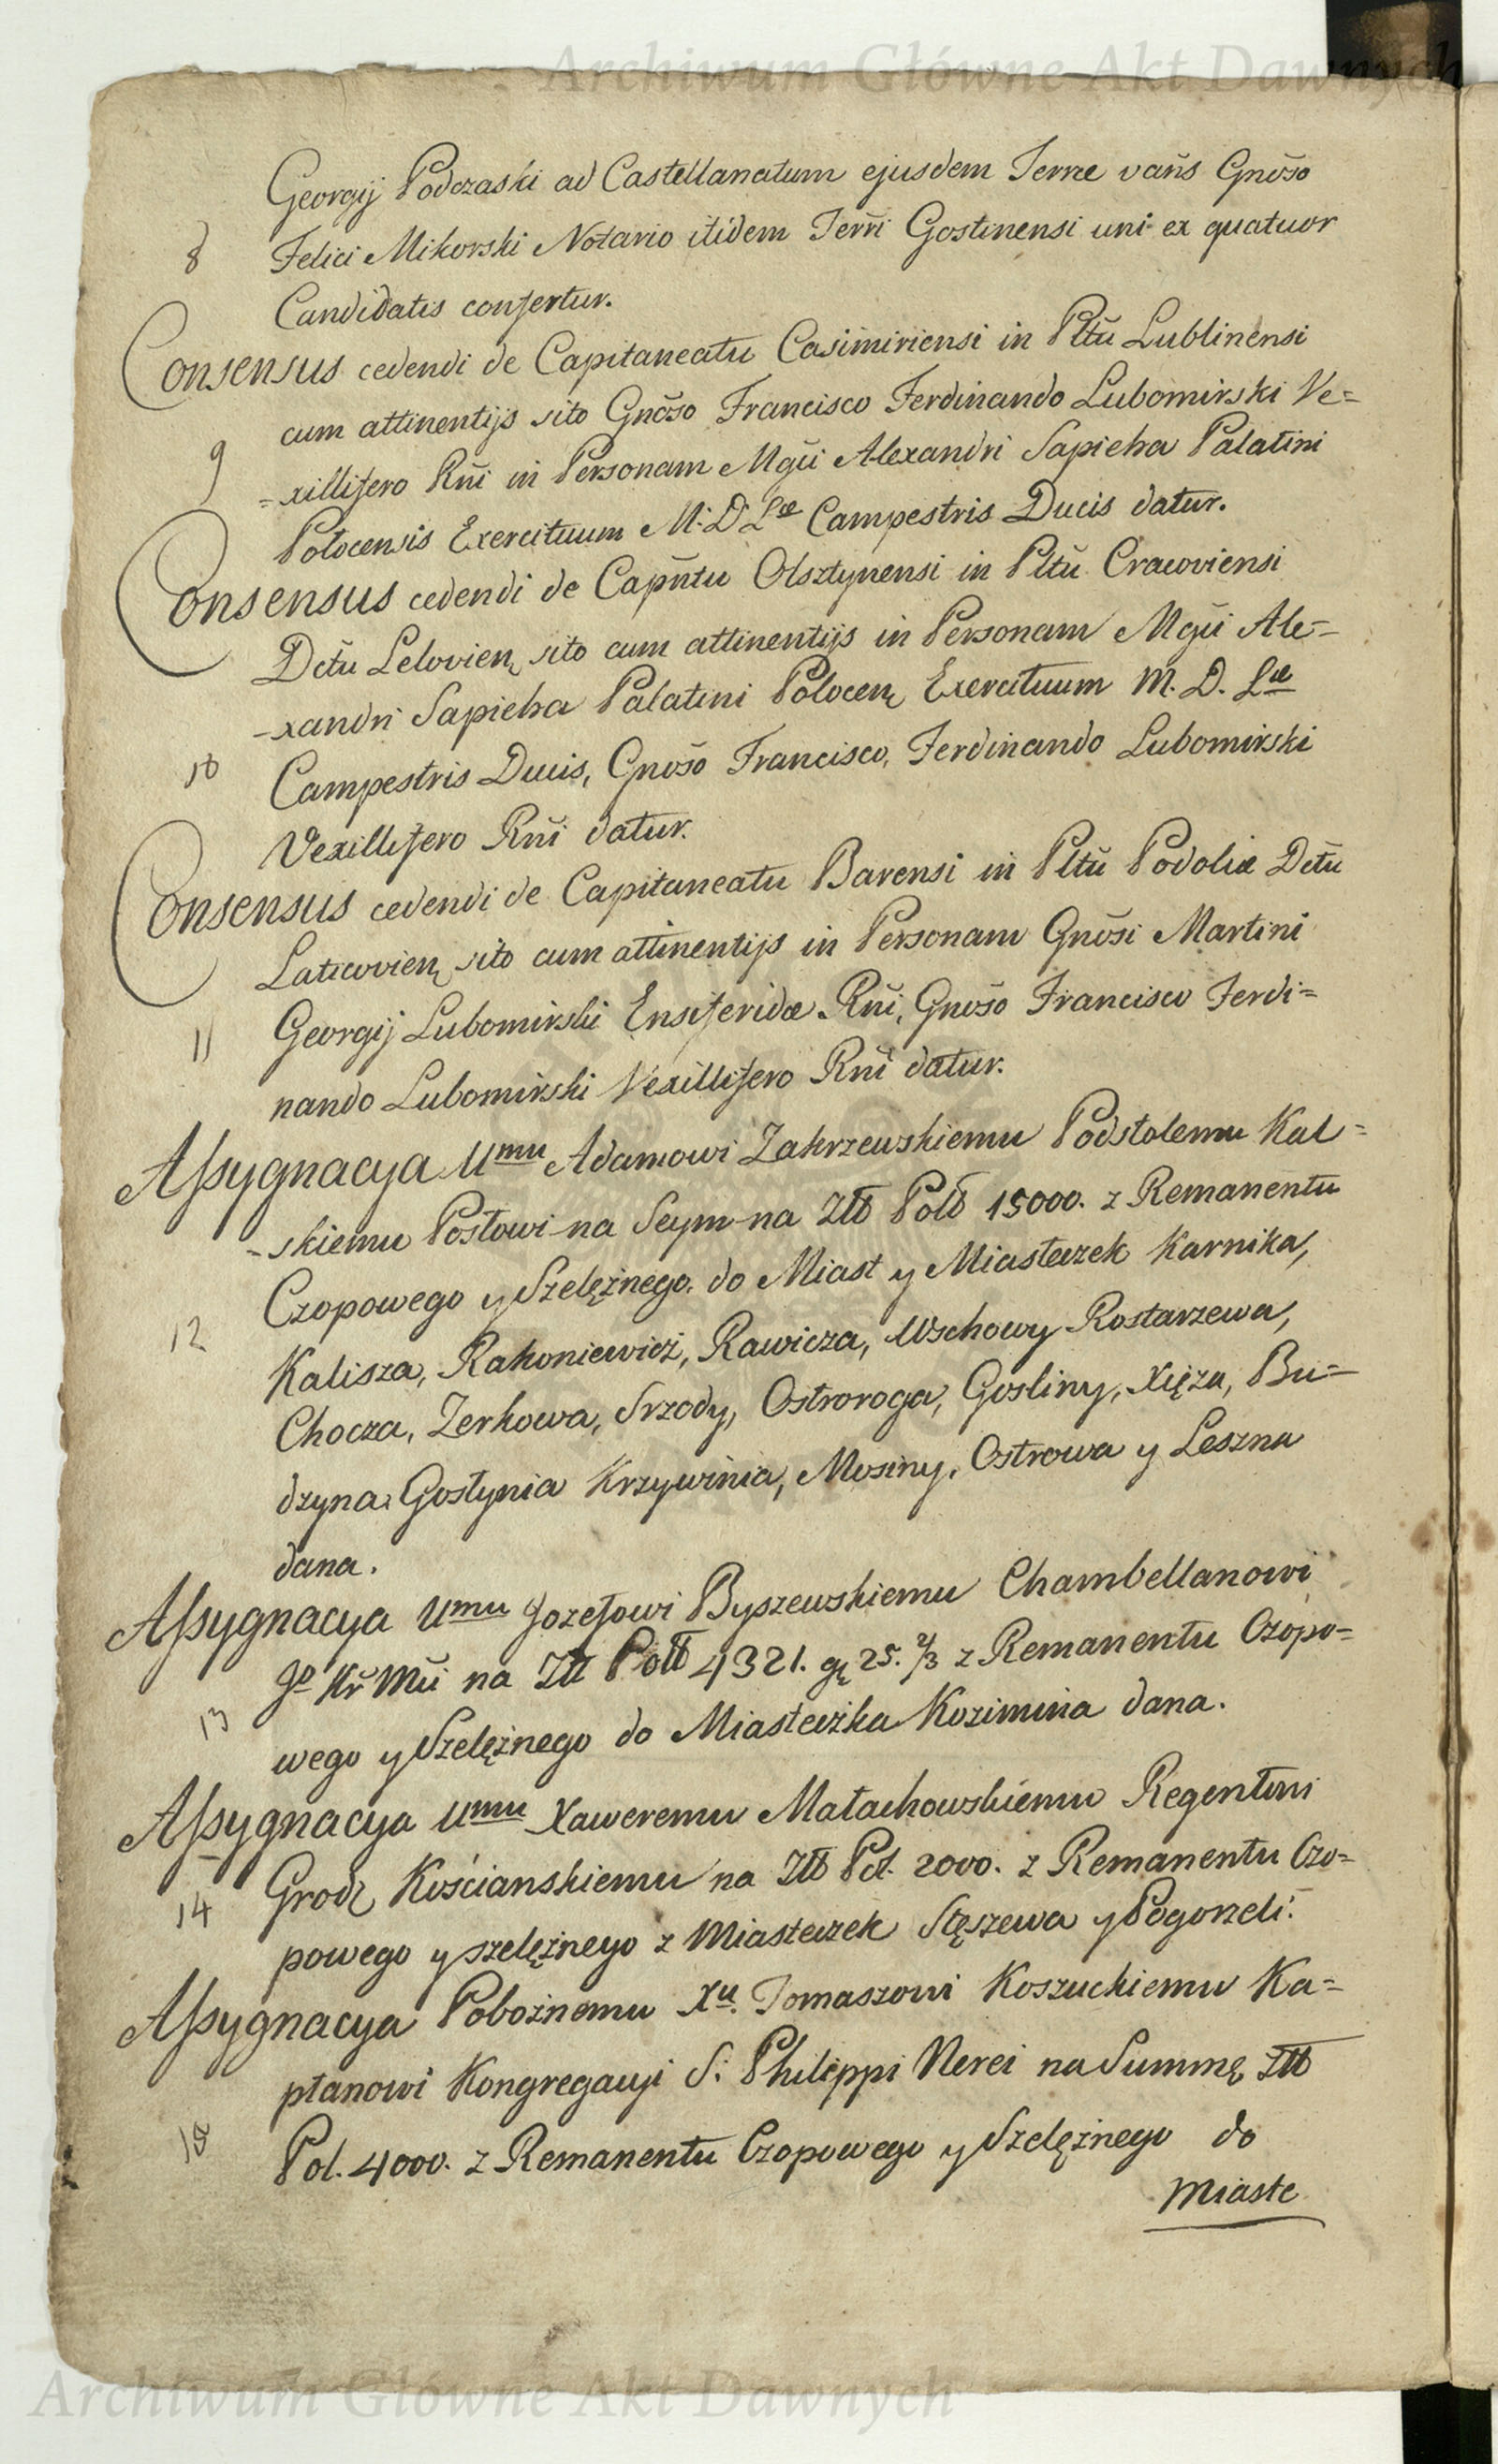 Archiwum Główne Akt Dawnych
Georgij Podczaski ad Castellanatum ejusdem Terræ vañs Gnõso
8 Felici Mikorski Notario itidem Terr̃i Gostinensi uni ex quatuor
Candidatis confertur.
Consensus cedendi de Capitaneatu Casimiriensi in Pltũ Lublinensi
cum attinentijs sito Gnõso Francisco Ferdinando Lubomirski Ve=
9 =xillifero Rñi in Personam Mgũi Alexandri Sapieha Palatini
Polocensis Exercituum M. D. Læ Campestris Ducis datur.
Consensus cedendi de Capñtu Olsztynensi in Pltũ Cracoviensi
Dctũ Lelovien, sito cum attinentijs in Personam Mgũi Ale=
-xandri Sapieha Palatini Polocen, Exercituum M. D. Læ
10 Campestris Ducis, Gnõso Francisco, Ferdinando Lubomirski
Vexillifero Rñi datur.
Consensus cedendi de Capitaneatu Barensi in Pltũ Podoliæ Dctũ
Laticovien, sito cum attinentijs in Personam Gnõsi Martini
11 Georgij Lubomirski Ensiferidæ Rñi, Gnõso Francisco Ferdi=
nando Lubomirski Vexillifero Rñi datur.
Assygnacya Umu Adamowi Zakrzewskiemu Podstolemu Kal=
-skiemu Posłowi na Seym na Złł Poll 15000. z Remanentu
Czopowego y Szelężnego. do Miast y Miasteczek Karnika,
12 Kalisza, Rakoniewicz, Rawicza, Wschowy Rostarzewa,
Chocza, Zerkowa, Srzody, Ostroroga, Gosliny, Xięza, Bu=
dzyna, Gostynia Krzywinia, Mosiny, Ostrowa y Leszna
dana.
Assygnacya Umu Jozefowi Byszewskiemu Chambellanowi
Jo Kr̃ Mũi na Złł Poll 4321. gę 25. 2/3 z Remanentu Czopo=
13 wego y Szelężnego do Miasteczka Kozimina dana.
Assygnacya Umu Xaweremu Małachowskiemu Regentowi
14 Grodz Kościanskiemu na Złł Pol. 2000. z Remanentu Czo=
powego y szelężnego z Miasteczek Stęszewa y Pogorzeli.
Assygnacya Pobożnemu Xu. Tomaszowi Koszuckiemu Ka=
płanowi Kongregacyi S. Philippi Nerei na Summę Złł
15 Pol. 4000. z Remanentu Czopowego y Szelężnego do
Miaste
Archiwum Główne Akt Dawnych